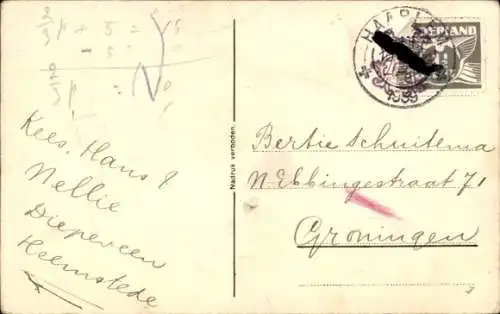 3p + 5 = 5
- 5 = 0
3p = 0
Kees, Hans &
Nellie
Diepeveen
Heemstede
Nadruk verboden.
HAARLEM
1939
NEDERLAND
Bertie Schuitema
N. Ebbingestraat 71
Groningen